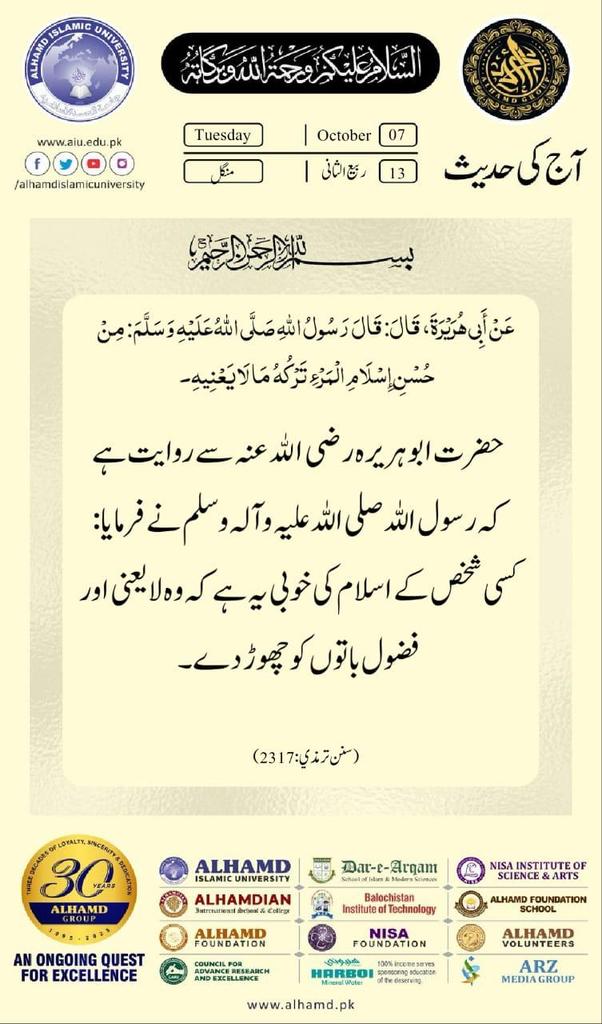 ALHAMD ISLAMIC UNIVERSITY
السلام علیکم ورحمۃ اللہ وبرکاتہ
ALHAMD GROUP
www.aiu.edu.pk
/alhamdislamicuniversity
Tuesday | October 07
منگل | ربیع الثانی 13
آج کی حدیث
بسم اللہ الرحمن الرحیم
عَنْ أَبِي هُرَيْرَةَ، قَالَ: قَالَ رَسُولُ اللهِ صَلَّى اللهُ عَلَيْهِ وَسَلَّمَ: مِنْ
حُسْنِ إِسْلَامِ الْمَرْءِ تَرْكُهُ مَا لَا يَعْنِيهِ۔
حضرت ابوہریرہ رضی اللہ عنہ سے روایت ہے
کہ رسول اللہ صلی اللہ علیہ وآلہ وسلم نے فرمایا:
کسی شخص کے اسلام کی خوبی یہ ہے کہ وہ لایعنی اور
فضول باتوں کو چھوڑ دے۔
(سنن ترمذي: 2317)
THREE DECADES OF LOYALTY, SINCERITY & DEDICATION
30 YEARS
ALHAMD
GROUP
1995-2025
AN ONGOING QUEST
FOR EXCELLENCE
ALHAMD
ISLAMIC UNIVERSITY
Dar-e-Arqam
School of Islam & Modern Sciences
NISA INSTITUTE OF
SCIENCE & ARTS
ALHAMDIAN
International School & College
Balochistan
Institute of Technology
ALHAMD FOUNDATION
SCHOOL
ALHAMD
FOUNDATION
NISA
FOUNDATION
ALHAMD
VOLUNTEERS
COUNCIL FOR
ADVANCE RESEARCH
AND EXCELLENCE
HARBOI
Mineral Water
100% income serves
sponsoring education
of the deserving.
ARZ
MEDIA GROUP
www.alhamd.pk